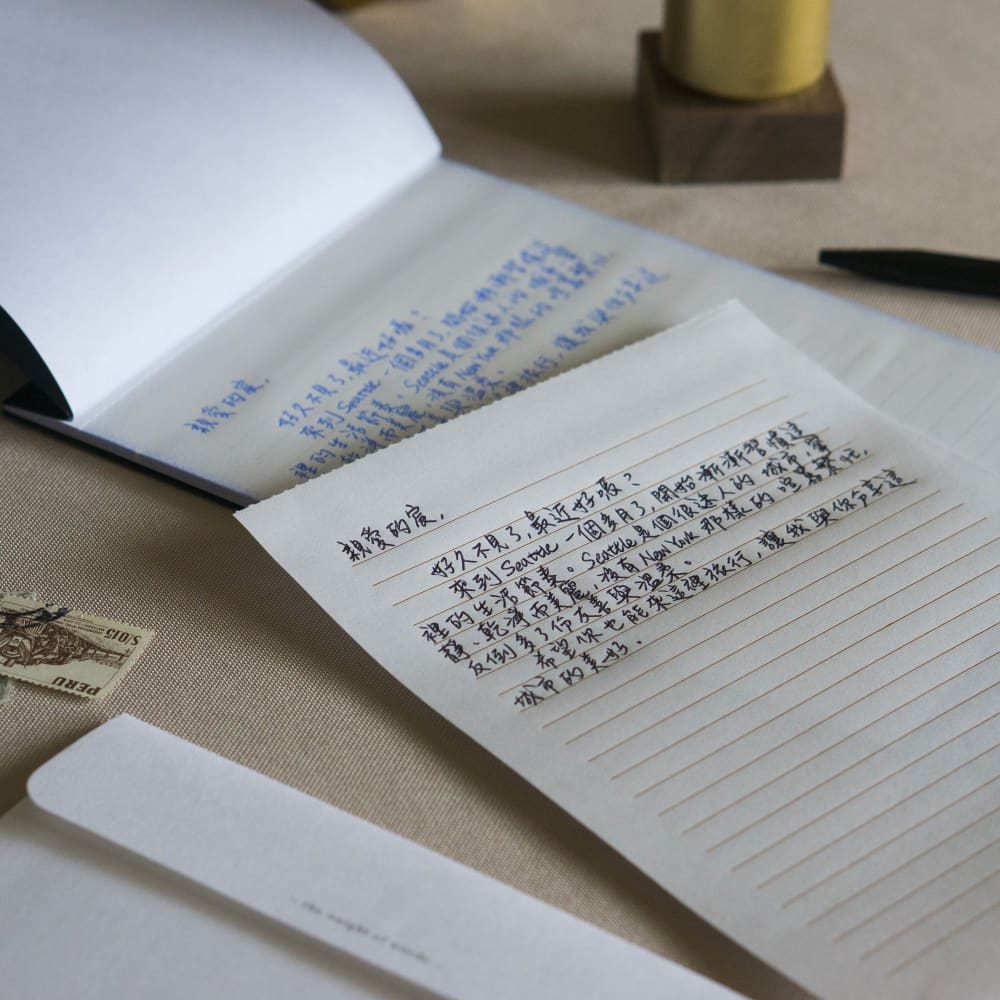 親愛的宸,
好久不見了,最近好嗎?
來到 Seattle 一個多月了,開始漸漸習慣這
裡的生活節奏。Seattle是個很迷人的城市,寧
靜、乾淨而美麗,沒有 New York 那樣的喧囂繁忙,
反倒多了份友善與溫柔。
希望你也能來這裡旅行,讓我與你分享這
城市的美好。
親愛的宸,
好久不見了,最近好嗎?
來到 Seattle 一個多月了,開始漸漸習慣這
裡的生活節奏。Seattle是個很迷人的城市,寧
PERU
S/0.15
- the weight of words -